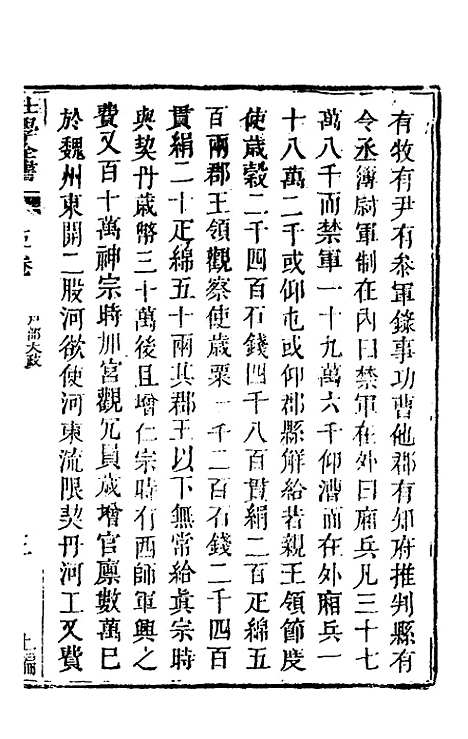 有牧有尹有參軍錄事功曹他郡有知府推判縣有
令丞簿尉軍制在內曰禁軍在外曰廂兵凡三十七
萬八千而禁軍一十九萬六千仰漕而在外廂兵一
十八萬二千或仰屯或仰郡縣解給若親王領節度
使歲穀二千四百石錢四千八百貫絹二百疋綿五
百兩郡王領觀察使歲粟一千二百石錢二千四百
貫絹二十疋綿五十兩其郡王以下無常給眞宗時
與契丹歲幣三十萬後且增仁宗時有西師軍興之
費又百十萬神宗時加宮觀冗員歲增官廩數萬巳
於魏州東開二股河欲使河東流限契丹河工又費
仕學全書
卷
戶部大政
上編